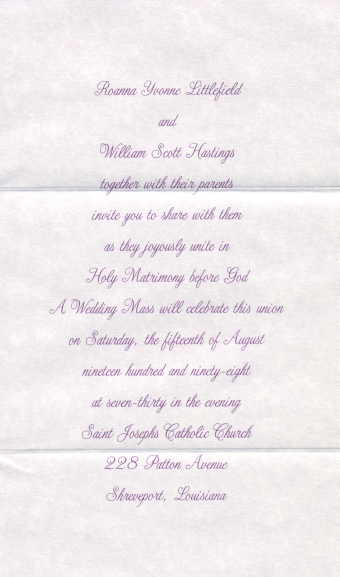 Roanna Yvonne Littlefield
and
William Scott Hastings
together with their parents
invite you to share with them
as they joyously unite in
Holy Matrimony before God
A Wedding Mass will celebrate this union
on Saturday, the fifteenth of August
nineteen hundred and ninety-eight
at seven-thirty in the evening
Saint Josephs Catholic Church
228 Patton Avenue
Shreveport, Louisiana